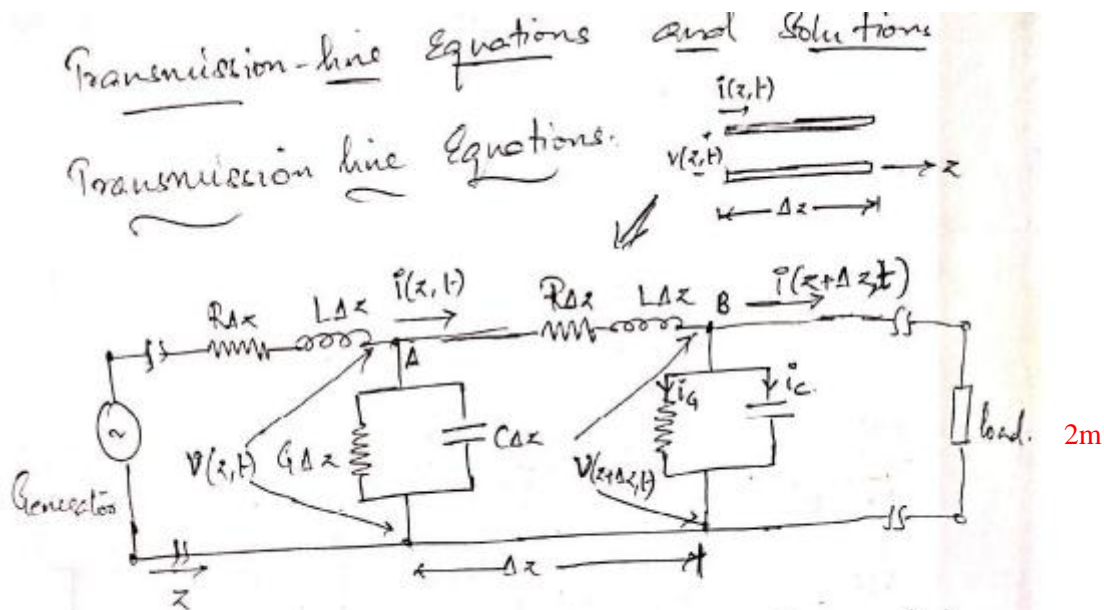 Transmission-line Equations and Solutions
i(z,t)
Transmission line Equations.
v(z,t)
z
Δz
i(z,t)
i(z+Δz,t)
RΔz
LΔz
RΔz
LΔz
B
A
iG
ic
~
v(z,t)
GΔz
CΔz
v(z+Δz,t)
load.
2m
Generator
Δz
z